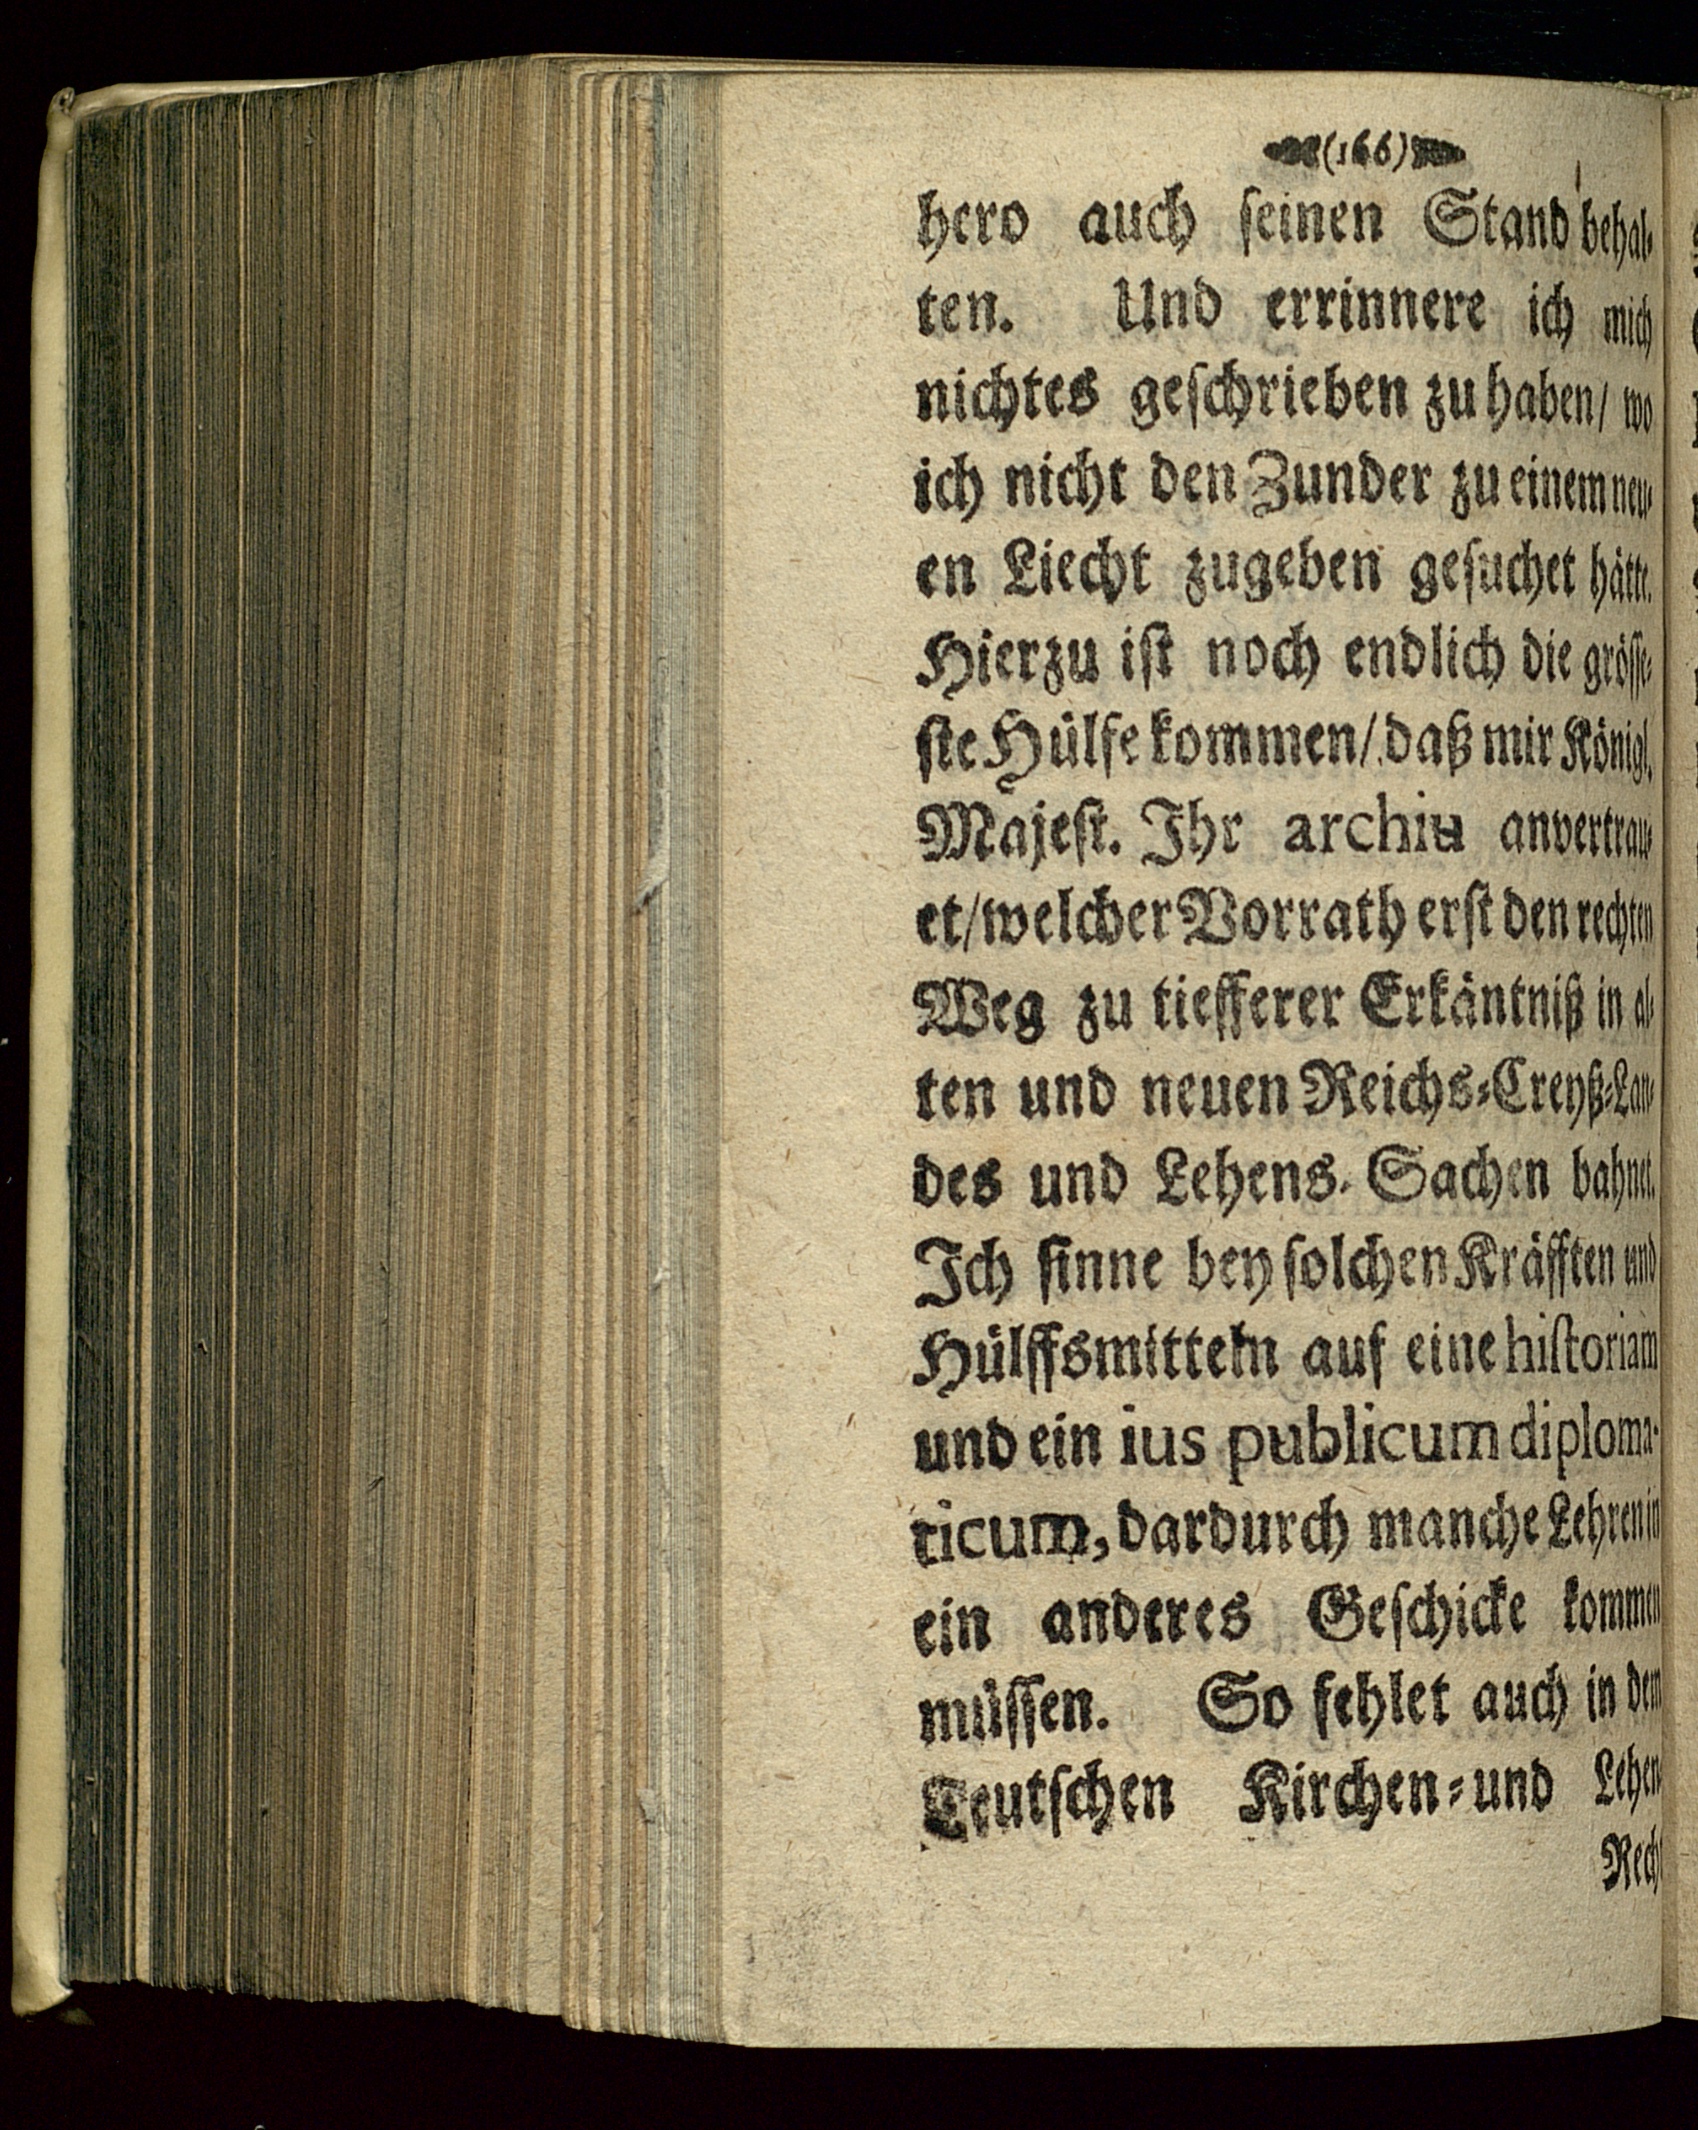 (166)
hero auch seinen Stand behal⸗
ten. Und errinnere ich mich
nichtes geschrieben zu haben/ wo
ich nicht den Zunder zu einem neu⸗
en Liecht zugeben gesuchet hätte.
Hierzu ist noch endlich die grösse⸗
ste Hülfe kommen/ daß mir Königl.
Majest. Ihr archiu anvertrau⸗
et/ welcher Vorrath erst den rechten
Weg zu tiefferer Erkäntniß in al⸗
ten und neuen Reichs⸗Creyß⸗Lan⸗
des und Lehens⸗Sachen bahnet.
Ich sinne bey solchen Kräfften und
Hülffsmitteln auf eine historiam
und ein ius publicum diploma-
ticum, dardurch manche Lehren in
ein anderes Geschicke kommen
müssen. So fehlet auch in dem
Teutschen Kirchen⸗und Lehen
Rech